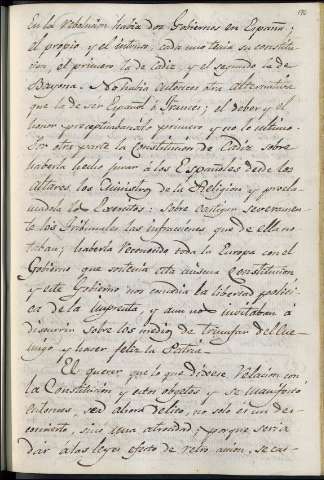 En la rebolucion habia dos Gobiernos en España;
el propio y el intruso; cada uno tenia su constitu-
cion, el primero la de Cadiz, y el segundo la de
Bayona. No habia entonces otra alternativa
que la de ser Español ó Frances; el deber y el
honor preceptuaban lo primero y no lo ultimo.
Por otra parte la Constitucion de Cadiz sobre
haberla hecho jurar á los Españoles desde los
altares los Ministros de la Religion y procla-
madola los Exercitos: sobre castigar severamen-
te los Tribunales las infracciones que de ella no-
taban; haberla reconocido toda la Europa con el
Gobierno que sostenia esta misma Constitucion
y este Gobierno nos concedia la libertad politi-
ca de la imprenta, y aun nos invitaban á
discurrir sobre los medios de triunfar del ene-
migo y hacer feliz la Patria.
El querer que lo que dixese relacion con
la Constitucion y estos objetos y se manifestó
entonces, sea ahora delito, no solo es un des-
concierto, sino una atrocidad; porque seria
dar á las leyes efecto de retro accion, se cas-